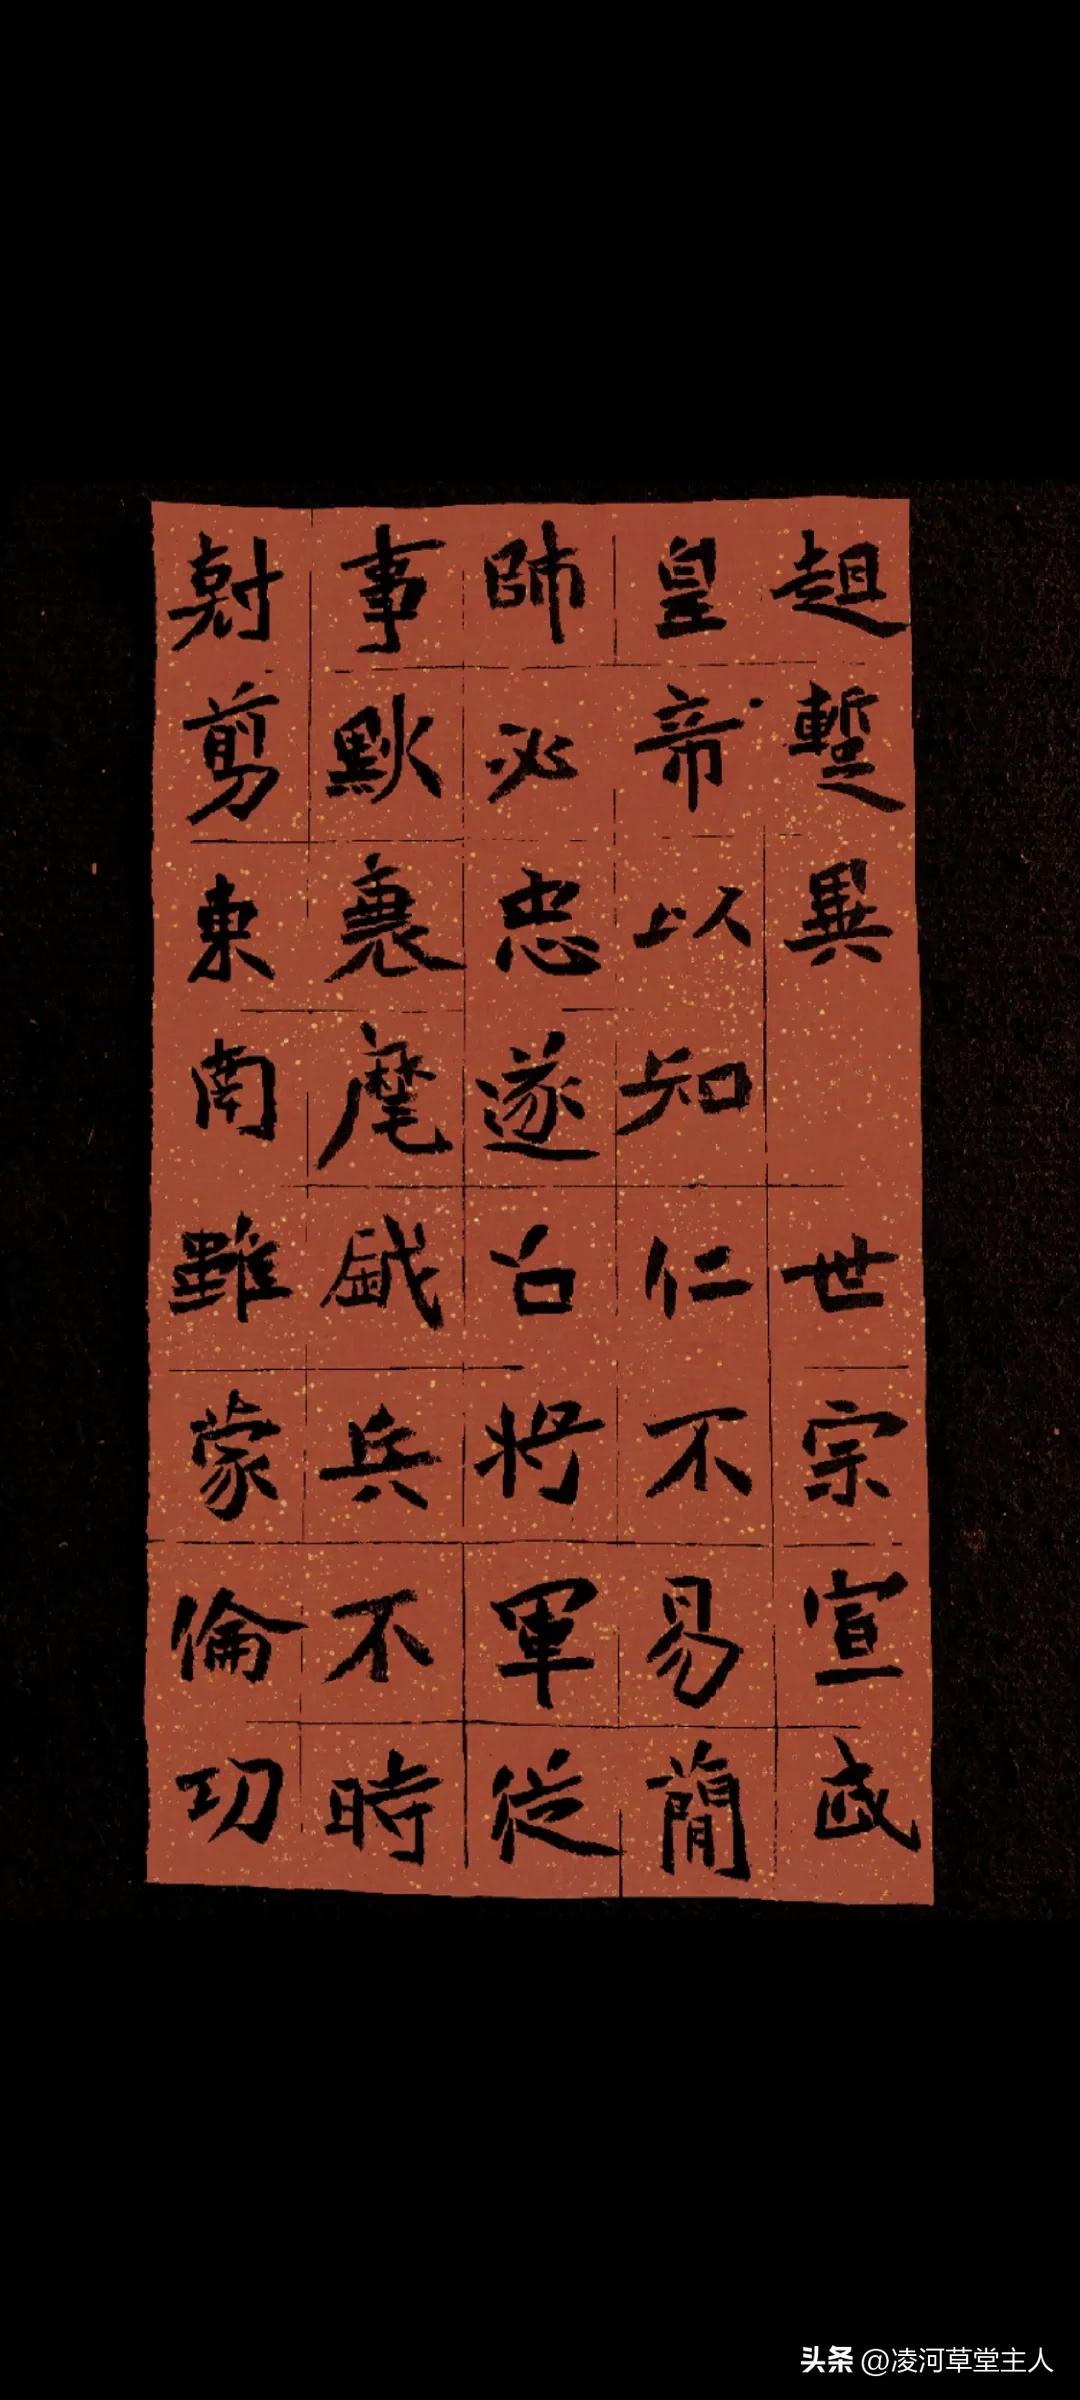 趄蹔異　世宗宣武
皇帝以知仁不易簡
師必忠遂召將軍從
事默襄麾鉞兵不時
剪東南雖蒙倫功
头条 @凌河草堂主人